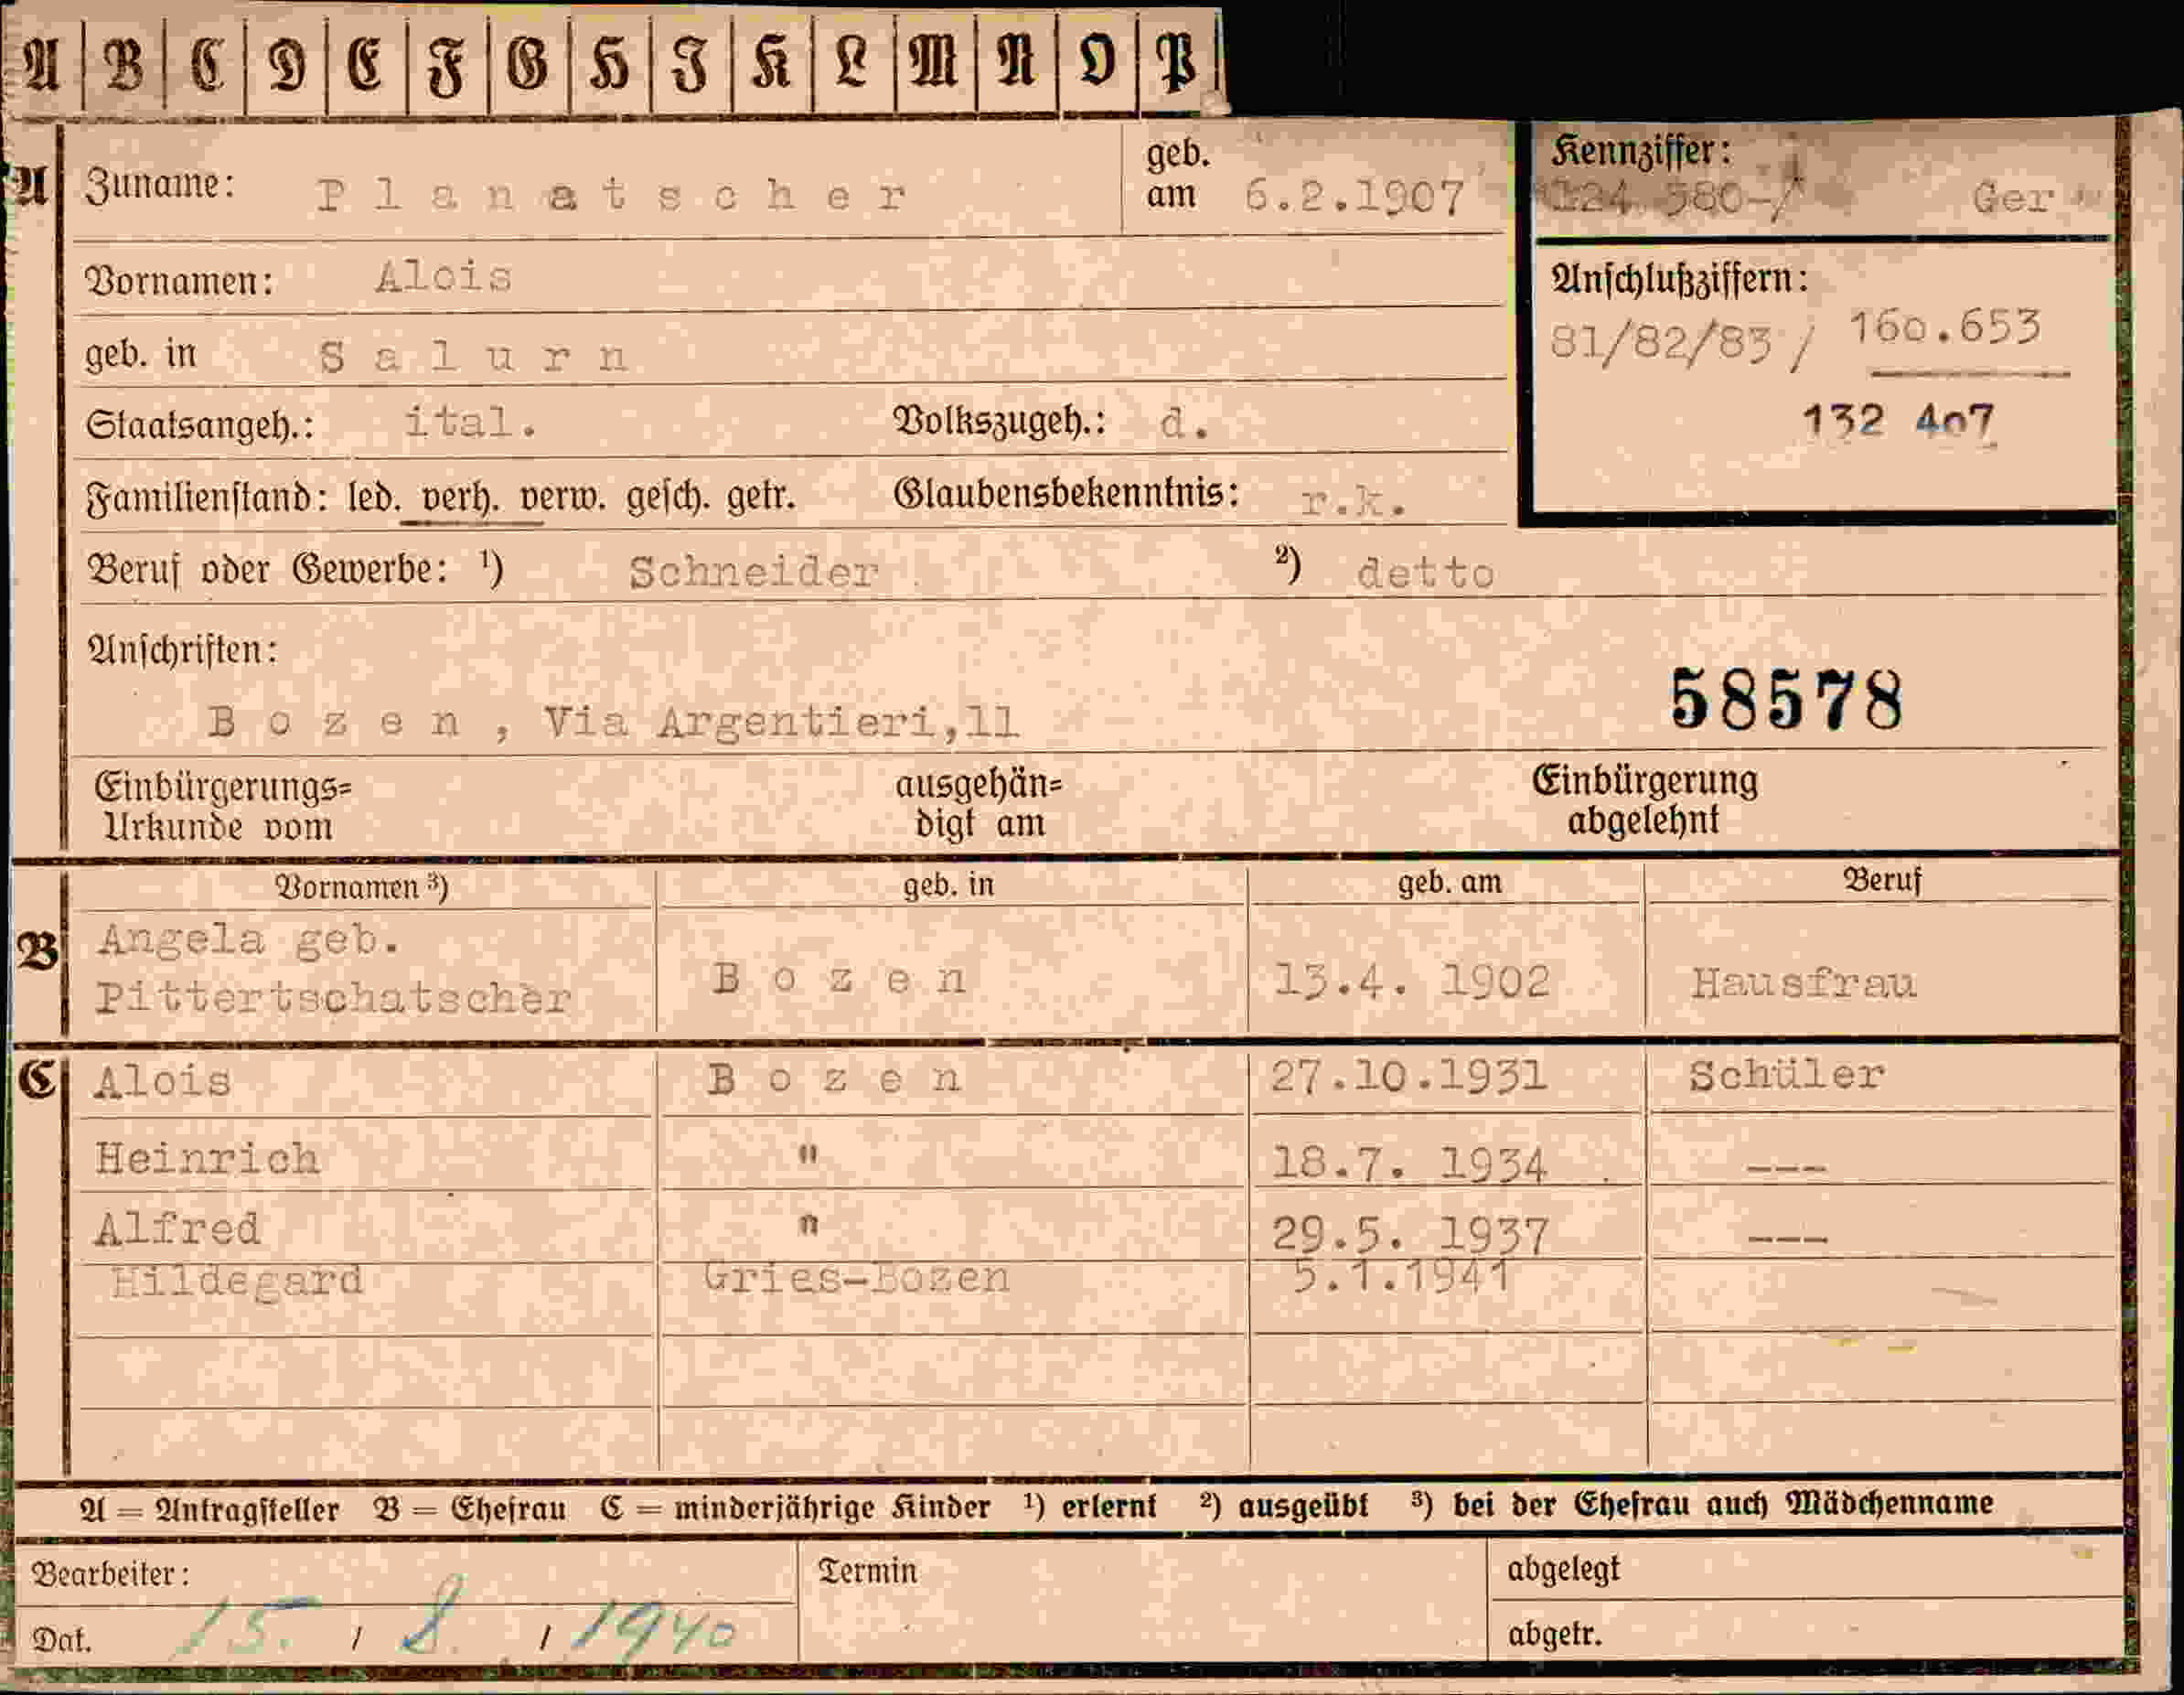 A B C D E F G H I K L M N O P
A Zuname: Planatscher geb. am 6.2.1907
Kennziffer: 124 580-/ Ger
Vornamen: Alois
Anschlußziffern:
81/82/83 / 160.653
132 407
geb. in Salurn
Staatsangeh.: ital. Volkszugeh.: d.
Familienstand: led. verh. verw. gesch. getr. Glaubensbekenntnis: r.k.
Beruf oder Gewerbe: ¹) Schneider ²) detto
Anschriften:
58578
Bozen, Via Argentieri,11
Einbürgerungs=
Urkunde vom
ausgehän=
digt am
Einbürgerung
abgelehnt
Vornamen ³) geb. in geb. am Beruf
B Angela geb.
Pittertschatscher Bozen 13.4. 1902 Hausfrau
C Alois Bozen 27.10.1931 Schüler
Heinrich " 18.7. 1934 ---
Alfred " 29.5. 1937 ---
Hildegard Gries-Bozen 5.1.1941
A = Antragsteller B = Ehefrau C = minderjährige Kinder ¹) erlernt ²) ausgeübt ³) bei der Ehefrau auch Mädchenname
Bearbeiter: Termin abgelegt
Dat. 15. / 8. / 1940 abgetr.